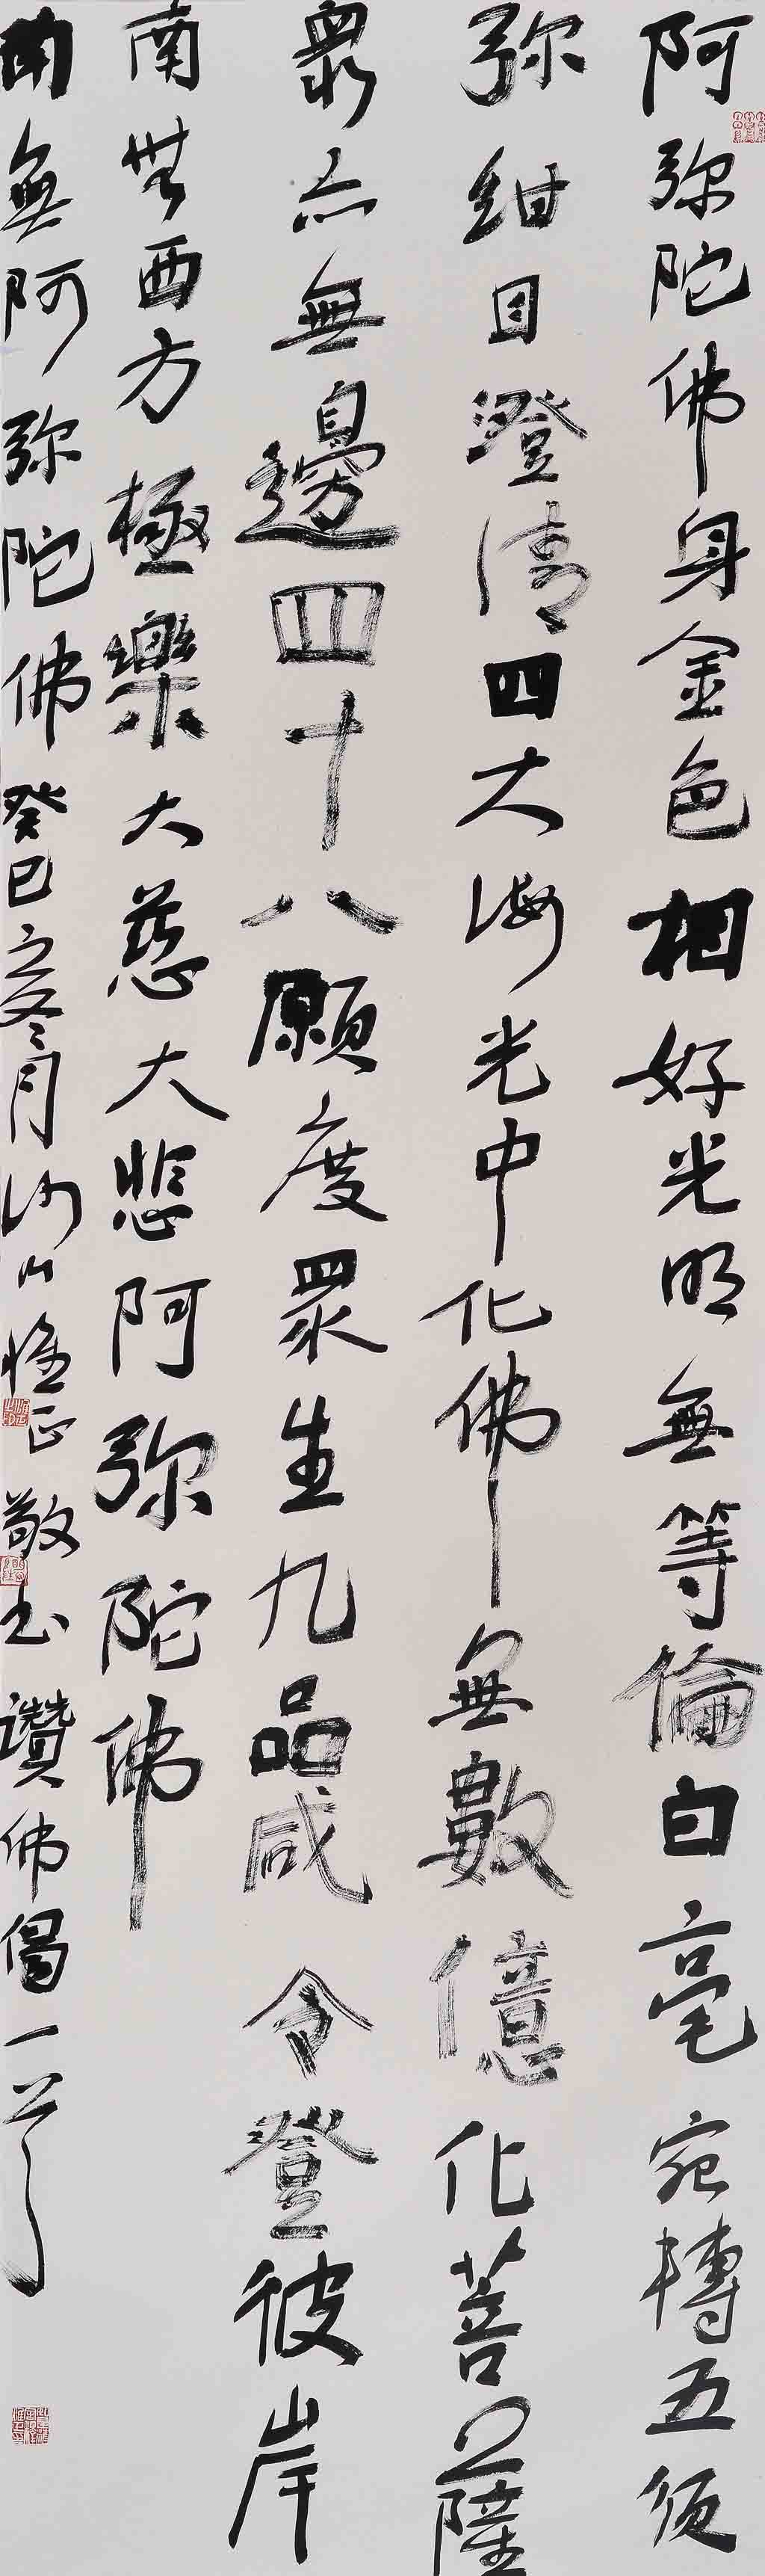 阿弥陀佛身金色相好光明無等倫白毫宛轉五須
弥紺目澄清四大海光中化佛無數億化菩薩
衆亦無邊四十八願度眾生九品咸令登彼岸
南無西方極樂大慈大悲阿弥陀佛
南無阿弥陀佛癸巳之冬月沙门正敬书讚佛偈一